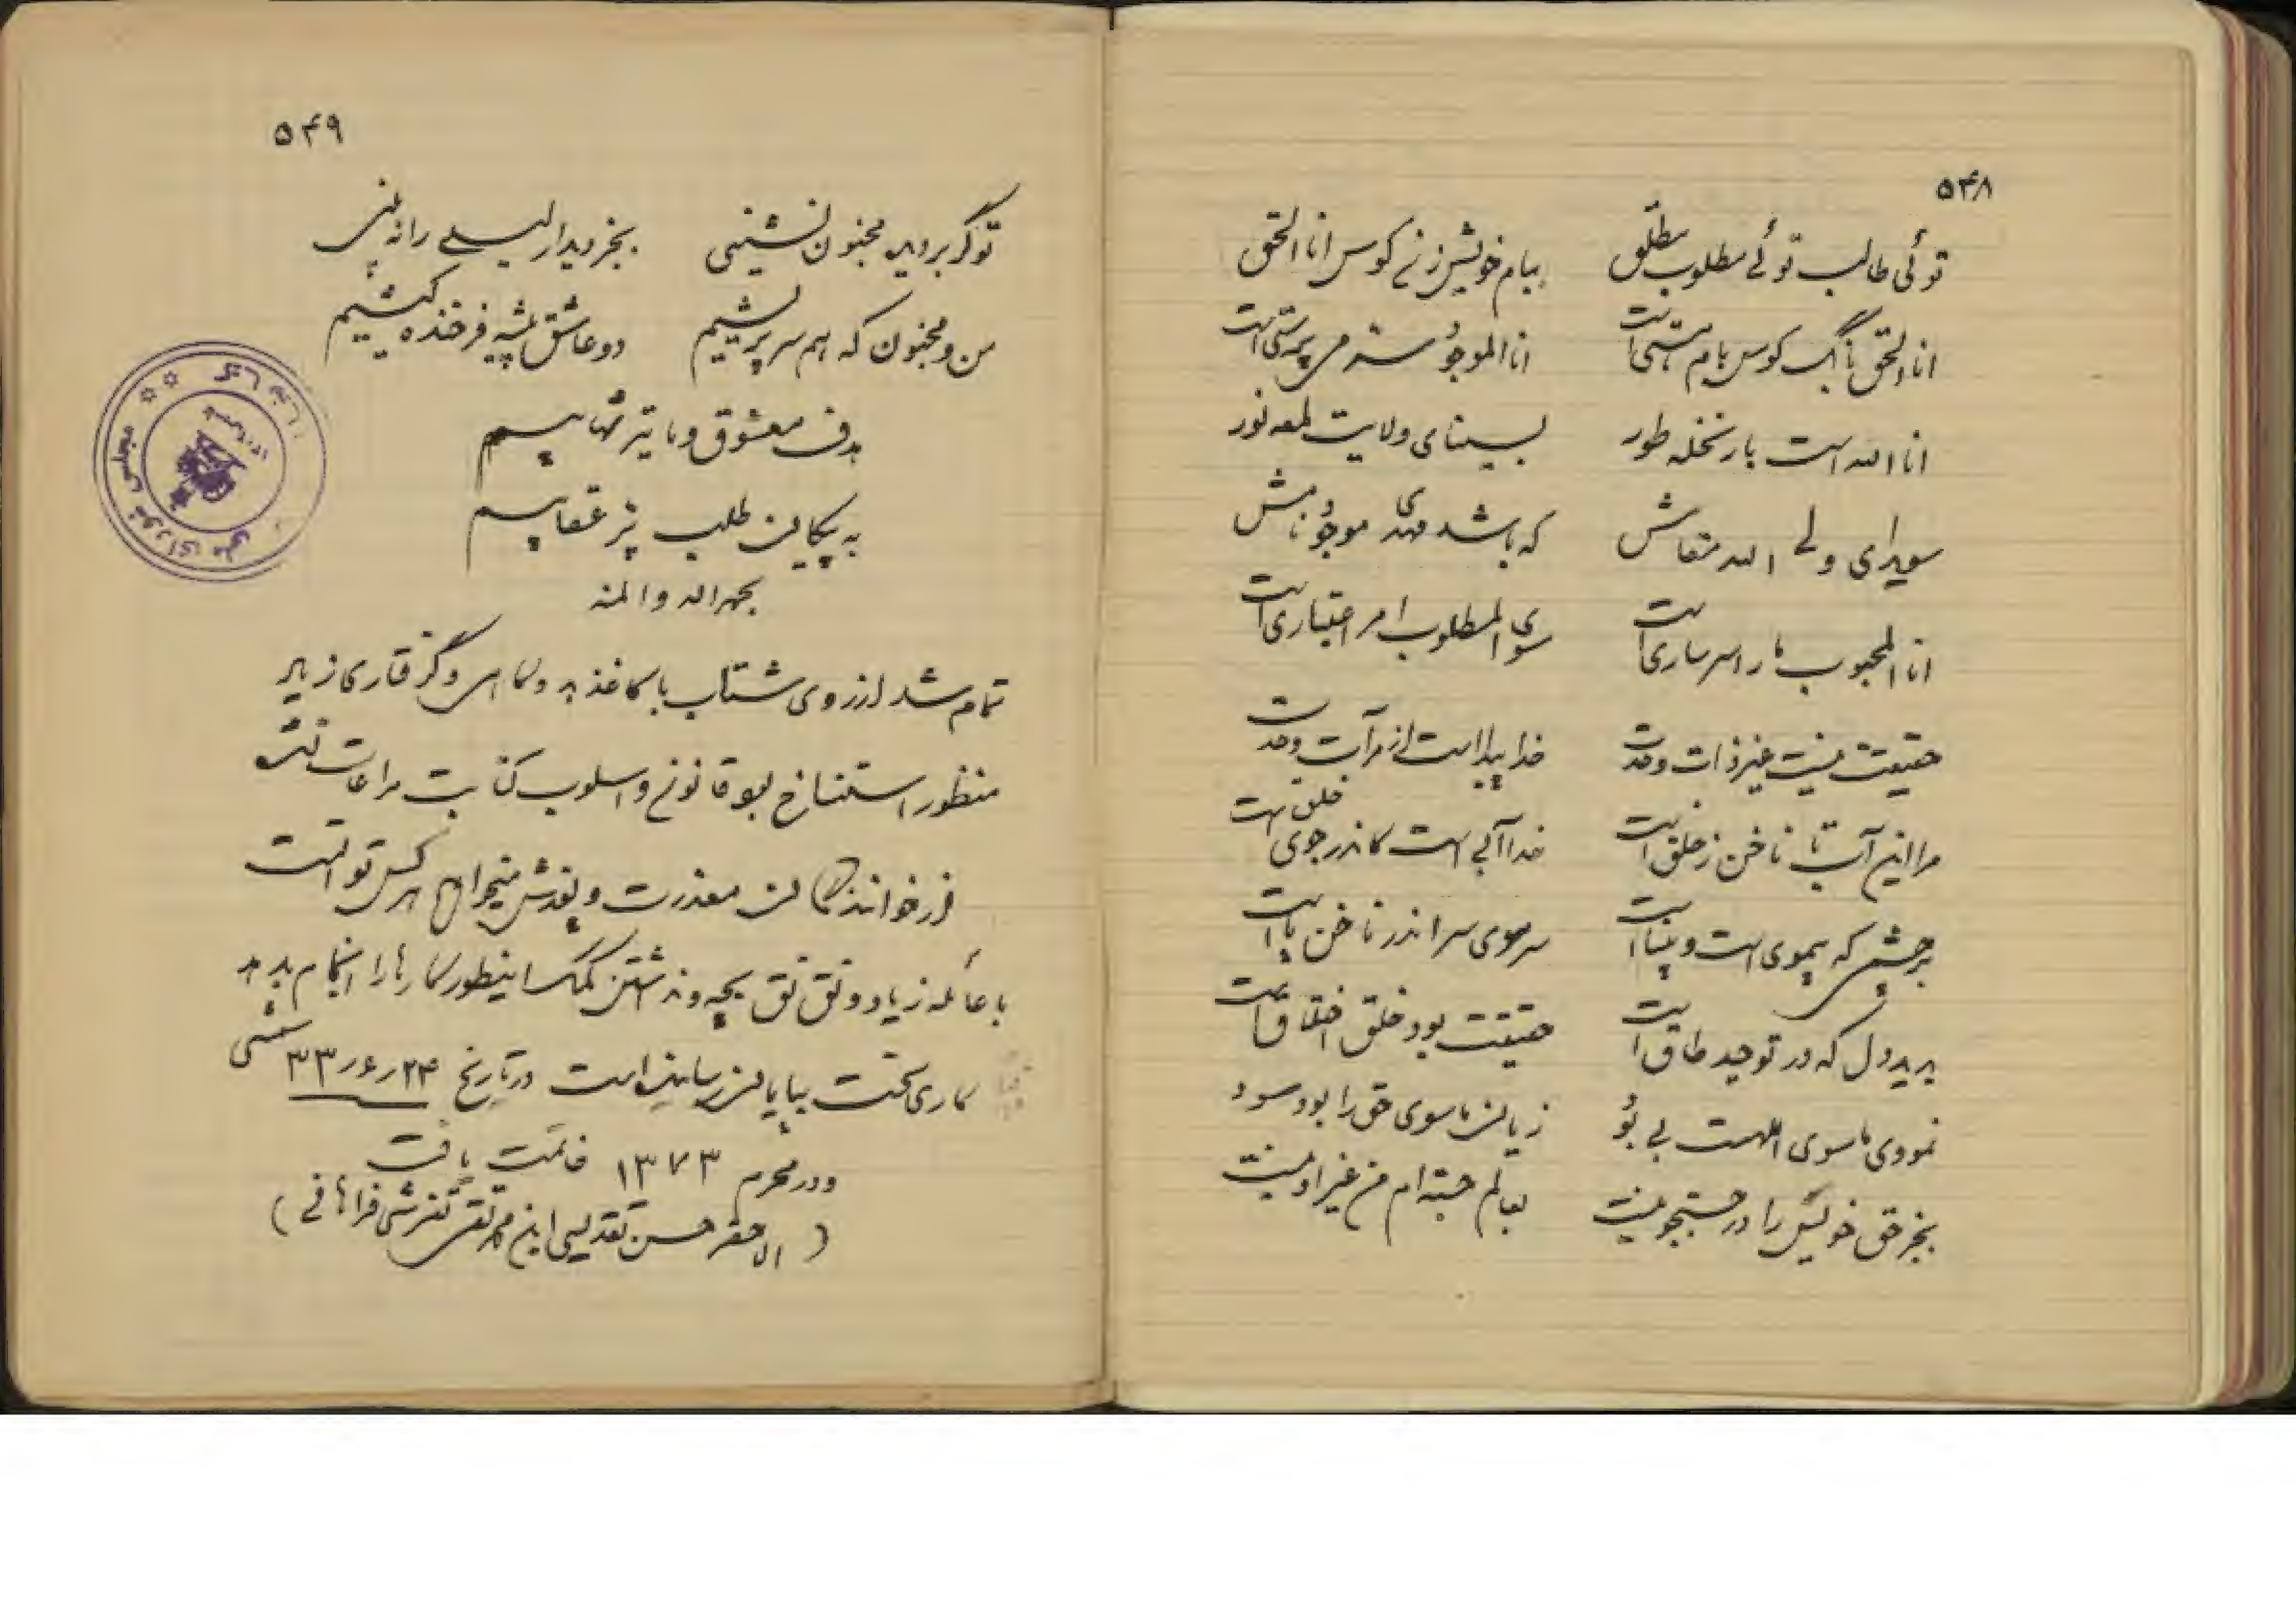 ۵۴۸
توئی طالب توئی مطلوب مطلق بیام خویش زنی کوس انا الحق
انا الحق بانگ کوس بام هستی است انا الموجود سر پرستی است
انا الله است بار نخله طور بسینای ولایت لمعه نور
سویدای ولی الله مقامش که باشد مهدی موجود نامش
انا المحبوب ما را سر ساری است سوی المطلوب امر اعتباری است
حقیقت نیست غیر ذات وحدت خدا پیدا است از مرآت وحدت
مرا این آب تا ناخن ز خلق است خدا آبی است کاندر جوی خلق است
بر چشمی که بیموی است و بینا است سر موی سر اندر ناخن پا است
بر دل که در توحید طاق است حقیقت بود خلق اختلاق است
نمودی ماسوی اللهست بی بود زیان ماسوی حق را بود سود
بجز حق خویش را در جستجو نیست بعالم جسته ام من غیر او نیست
۵۴۹
تو گر بر دیده مجنون نشینی بجز دیدار لیلی را نه بینی
من و مجنون که هم سر پریشیم دو عاشق پیشه فرخنده کیشیم
هدف معشوق و ما تیر شهابیم
به پیکان طلب پر عقابیم
بحمد الله و المنه
تمام شد از روی شتاب با کاغذ بد و گرفتاری زیاد
منظور استنساخ بود قانون و اسلوب کتابت مراعات نشد
از خوانندگان معذرت و پوزش میخواهم هر کس توانست
با عائله زیاد و نق نق بچه و نداشتن کمک اینطور کارها را انجام بدهد
کاری سخت بپایان رسانیده است در تاریخ ۲۴ر۶ر۳۳ شمسی
و در محرم ۱۳۷۳ خاتمت یافت
(الاحقر حسن تقدیسی ابن محمد تقی تفرشی فراهانی)
مجلس شورای ملی